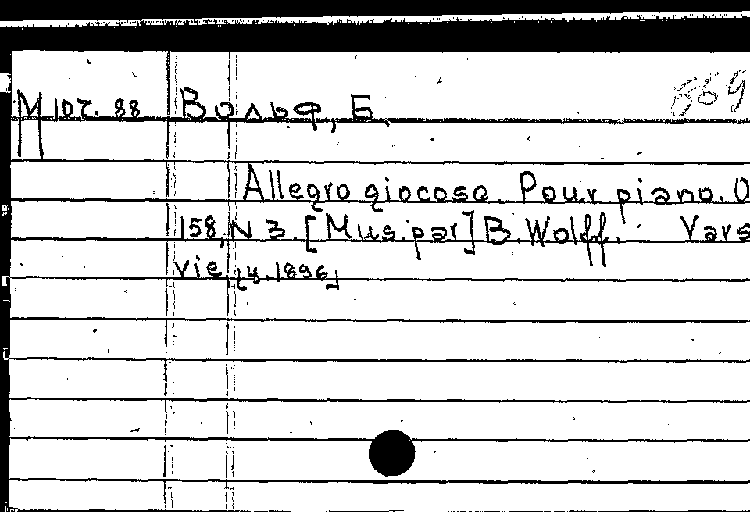 М 107.88 Вольф, Б. 869
Allegro giocoso. Pour piano. O
158, N 3. [Mus. par] B. Wolff. Vars
vie, [ц. 1896]